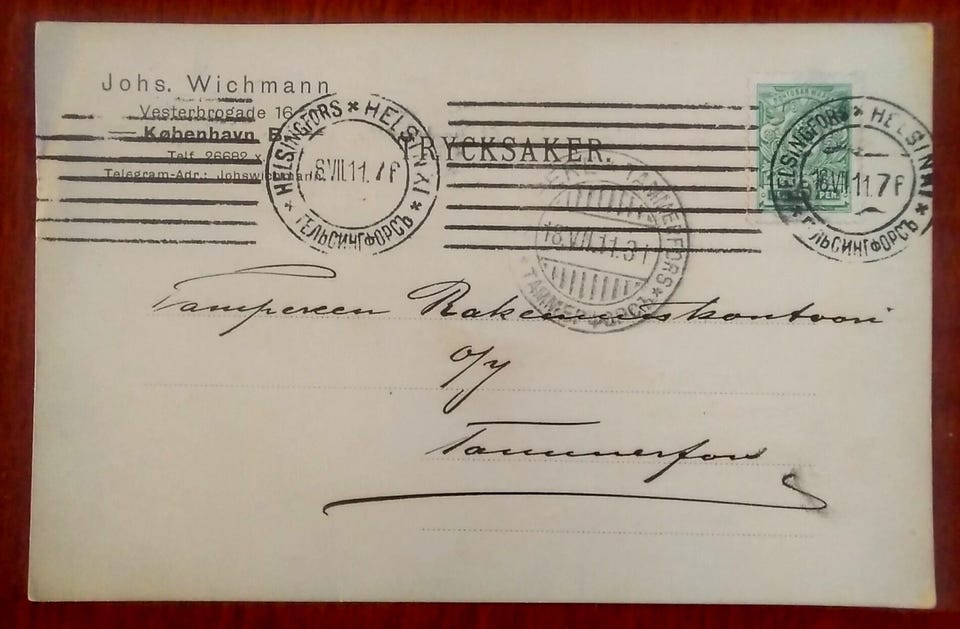 Johs. Wichmann
Vesterbrogade 16
København B.
Telf. 26682 x
Telegram-Adr.: Johswichmann
TRYCKSAKER.
HELSINGFORS * HELSINKI * ГЕЛЬСИНГФОРСЪ *
18.VII.11.7 F
HELSINGFORS * HELSINKI * ГЕЛЬСИНГФОРСЪ *
18.VII.11.7 F
PEN.
TAMMERFORS
18.VII.11.3 I
Tampereen Rakennuskontoori
o/y
Tammerfors